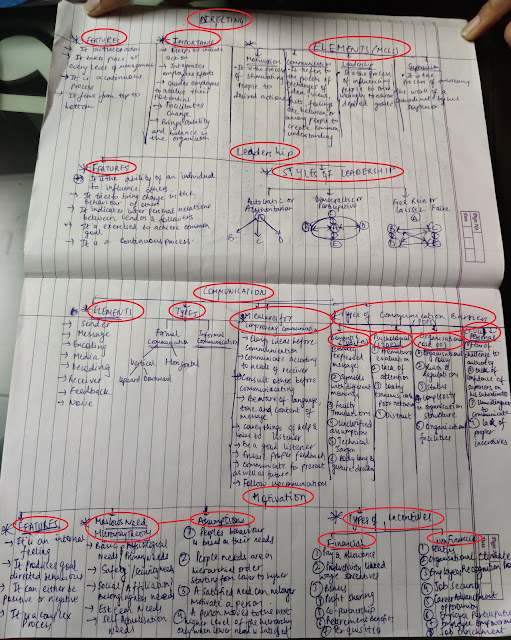 DIRECTING
FEATURES
- It initiates action
- It takes place at
every level of management
- It is a continuous
process
- It flows from top to
bottom
IMPORTANCE
- Helps to initiate
action
- Integrates
employees efforts
- Guides employees
to realise their
potential
- Facilitates
change
- Brings stability
and balance in
the organisation
ELEMENTS/MCLS
Motivation
It is the process
of stimulating
people to
desired actions
Communication
It refers to
the process of
exchange of
ideas, views,
facts, feelings
etc between or
among people to
create common
understanding
Leadership
It is the process
of influencing
people to
desired goals
Supervision
It is the
process of overseeing
the work of
subordinates by their
superiors
Leadership
FEATURES
It is the ability of an individual
to influence others
- It tries to bring change in the
behaviour of others
- It indicates inter personal relations
between leaders & followers
- It is exercised to achieve common
goal
- It is a continuous process.
STYLES OF LEADERSHIP
Autocratic or
Authoritarian
A
B
C
D
Democratic or
Participative
Free Rein or
Laissez-Faire
COMMUNICATION
ELEMENTS
→ Sender
→ Message
→ Encoding
→ Media
→ Decoding
→ Receiver
→ Feedback
→ Noise
TYPES
Formal
Communication
Informal
Communication
Vertical
Horizontal
Upward
Downward
Measures to
improve communication
→ Clarify ideas before
communication
→ Communicate according
to needs of receiver
→ Consult others before
communicating
→ Be aware of language,
tone and content of
message
→ Convey things of help &
value to listener
→ Be a good listener
→ Ensure proper feedback
→ Communicate for present
as well as future
→ Follow up communication
Types of Communication Barriers
expressed message
② Symbols
with different
meanings
③ Faulty
Translations
④ Unclarified
assumption
⑤ Technical
Jargon
⑥ Body lang &
gesture decode
Psychological
① Premature
evaluation
② Lack of
attention
③ Loss by
transmission &
poor retention
④ Distrust
Organisational
① Organisational
Policy
② Rules &
regulations
③ Status
④ Complexity
in organisation
structure
⑤ Organisational
facilities
Personal
① Fear of
challenge to
authority
② Lack of
confidence of
superior on
his subordinates
③ Unwillingness
to communicate
④ Lack of
proper
incentives
Motivation
FEATURES
→ It is an internal
feeling
→ It produces goal
directed behaviour
→ It can either be
positive or negative
→ It is a complex
process
Maslow's Need
Hierarchy Theory
→ Basic physiological
Needs
→ Safety/Security needs
→ Social/Affiliation/
belongingness needs
→ Esteem Needs
→ Self Actualisation
Need
Assumptions
① Peoples behaviour
is based on their needs
② Peoples needs are in
hierarchical order
starting from lower to higher
③ A satisfied need can no longer
motivate a person
④ Person moves to the next
higher level of the hierarchy
only when lower need is satisfied
Types of Incentives
Financial
① Pay & allowance
② Productivity linked
wage incentives
③ Bonus
④ Profit Sharing
⑤ Co-partnership
⑥ Retirement Benefits
⑦ Perquisites
Non Financial
① Status
② Organisational Climate
③ Employee Recognition
④ Job Security
⑤ Career Advancement
opportunity
⑥ Employee Participation
⑦ Employee Empowerment
⑧ Job Enrichment